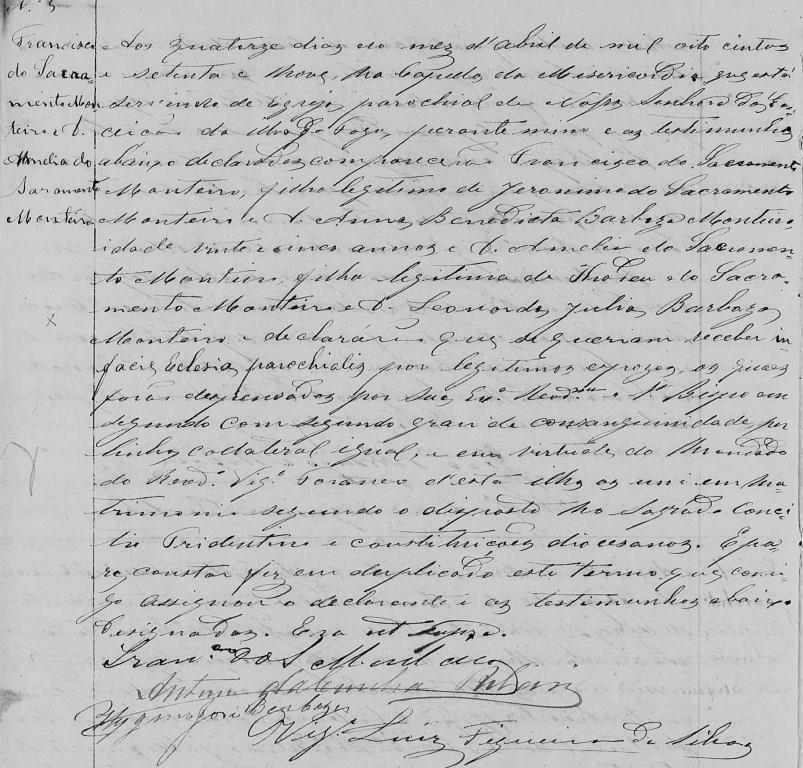 N. 5
Francisco
do Sacra-
mento Mon
teiro e D.
Amelia do
Saramento
Monteiro
Aos quatorze dias do mez d'abril de mil oito centos
e setenta e nove, na Capella da Misericordia que está
servindo de Egreja parochial de Nossa Senhora da Con-
ceição da ilha do Fogo, perante mim e as testimunhas
abaixo declaradas, compareceram Francisco do Sacramento
Monteiro, filho legitimo de Jeronimo do Sacramento
Monteiro e D. Anna Benedicta Barboza Monteiro
idade vinte e cinco annos e D. Amelia do Sacramen-
to Monteiro, filha legitima de Thadeu do Sacra-
mento Monteiro e D. Leonarda Julia Barboza
Monteiro e declarárão que se queriam receber in
facie Eclesia parochialis por legitimos espozos, os quaes
forão despensados por Sua Exª Revd.ma o Sr Bispo em
segundo com segundo grau de consanguinidade, por
linha collateral igual, e em virtude do Mandado
do Revd.º Vigº Foraneo d'esta ilha os uni em ma-
trimonio segundo o disposto no Sagrado Conci-
lio Tridentino e constituições diocesanas. E pa-
ra constar fiz em duplicado este termo que comi-
go assignou o declarante e as testimunhas abaixo
designadas. Era ut supra.
Fran.co do S Monteiro
Antonio
José Barboza
Vigº Luiz Figueira da Silva